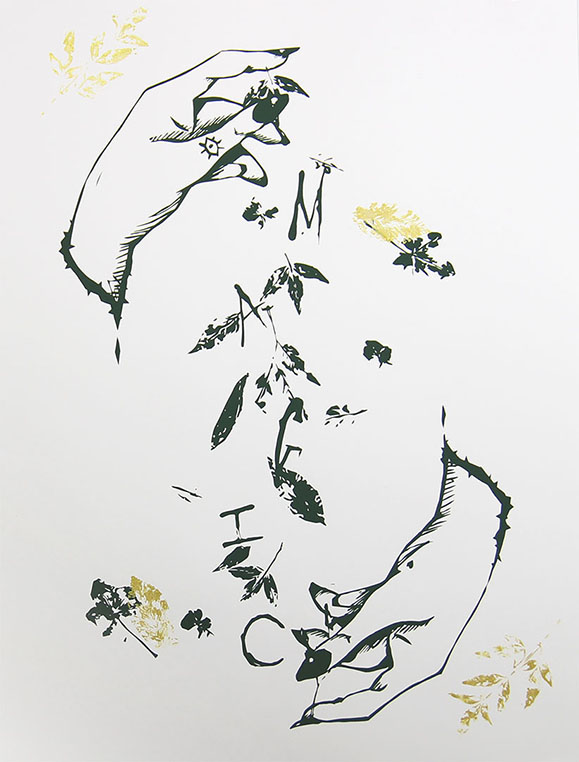 M
A
G
I
C